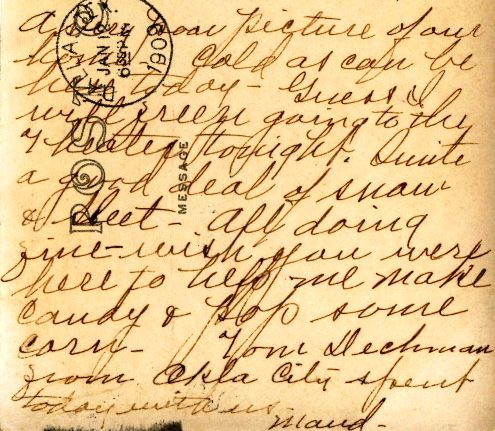 A poor picture of our
home. Cold as can be
here today - Guess I
will freeze going to the
Theater tonight. Quite
a good deal of snow
& sleet - All doing
fine - wish you were
here to help me make
candy & pop some
corn - Tom Dechman
from Okla City spent
today with us
Maud -
JAN
1909
POST
MESSAGE